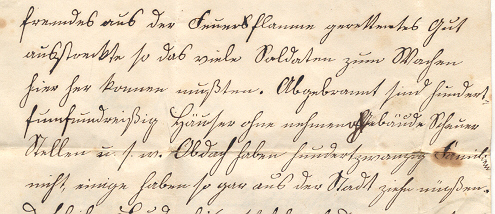 fremdes aus der Feuersflamme gerettentes Gut
ausstreckte so das viele Soldaten zum Wachen
hier her kommen mußten. Abgebrannt sind hundert-
fünfundreißig Häuser ohne nehmengebäude Scheuer
Stellen u. s. w. Obdach haben hundertzwanzig Famil:
nicht, einige haben so gar aus der Stadt ziehn müßen.